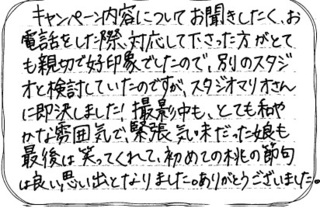 キャンペーン内容についてお聞きしたく、お
電話をした際、対応して下さった方がとて
も親切で好印象でしたので、別のスタジ
オと検討していたのですが、スタジオマリオさん
に即決しました！撮影中も、とても和や
かな雰囲気で、緊張気味だった娘も
最後は笑ってくれて、初めての桃の節句
は良い思い出となりました。ありがとうございました。